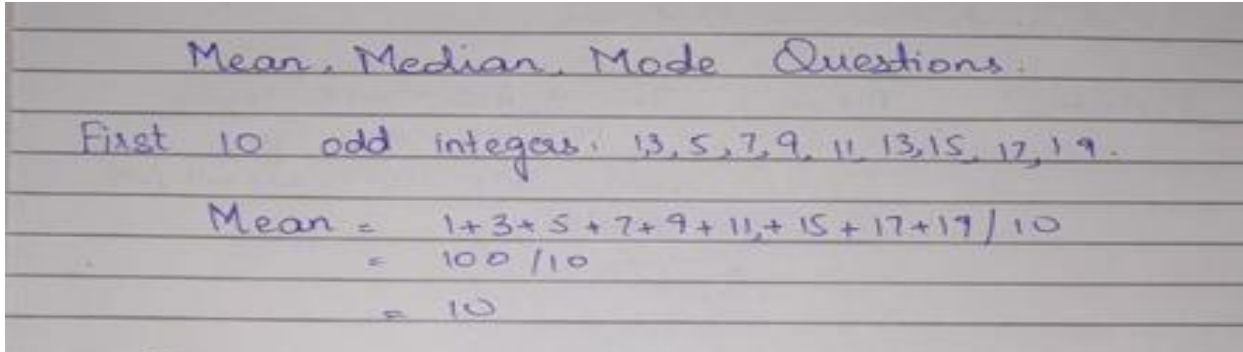 Mean, Median, Mode Questions.
First 10 odd integers: 1,3, 5, 7, 9, 11, 13, 15, 17, 19.
Mean = 1+3+5+7+9+11,+15+17+19/10
= 100/10
= 10